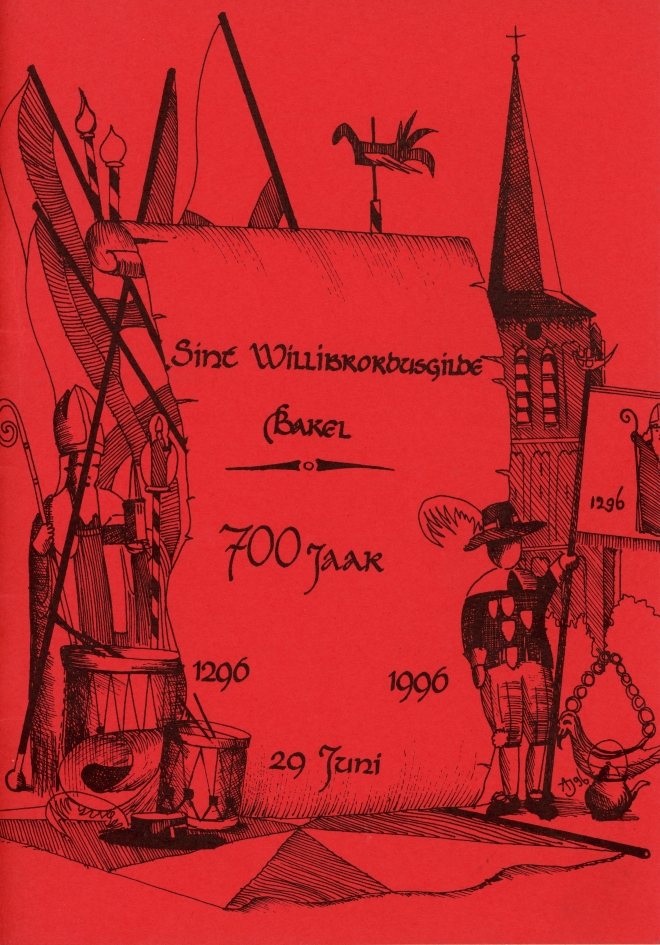 Sint Willibrordusgilde
Bakel
700 Jaar
1296
1996
29 Juni
1296